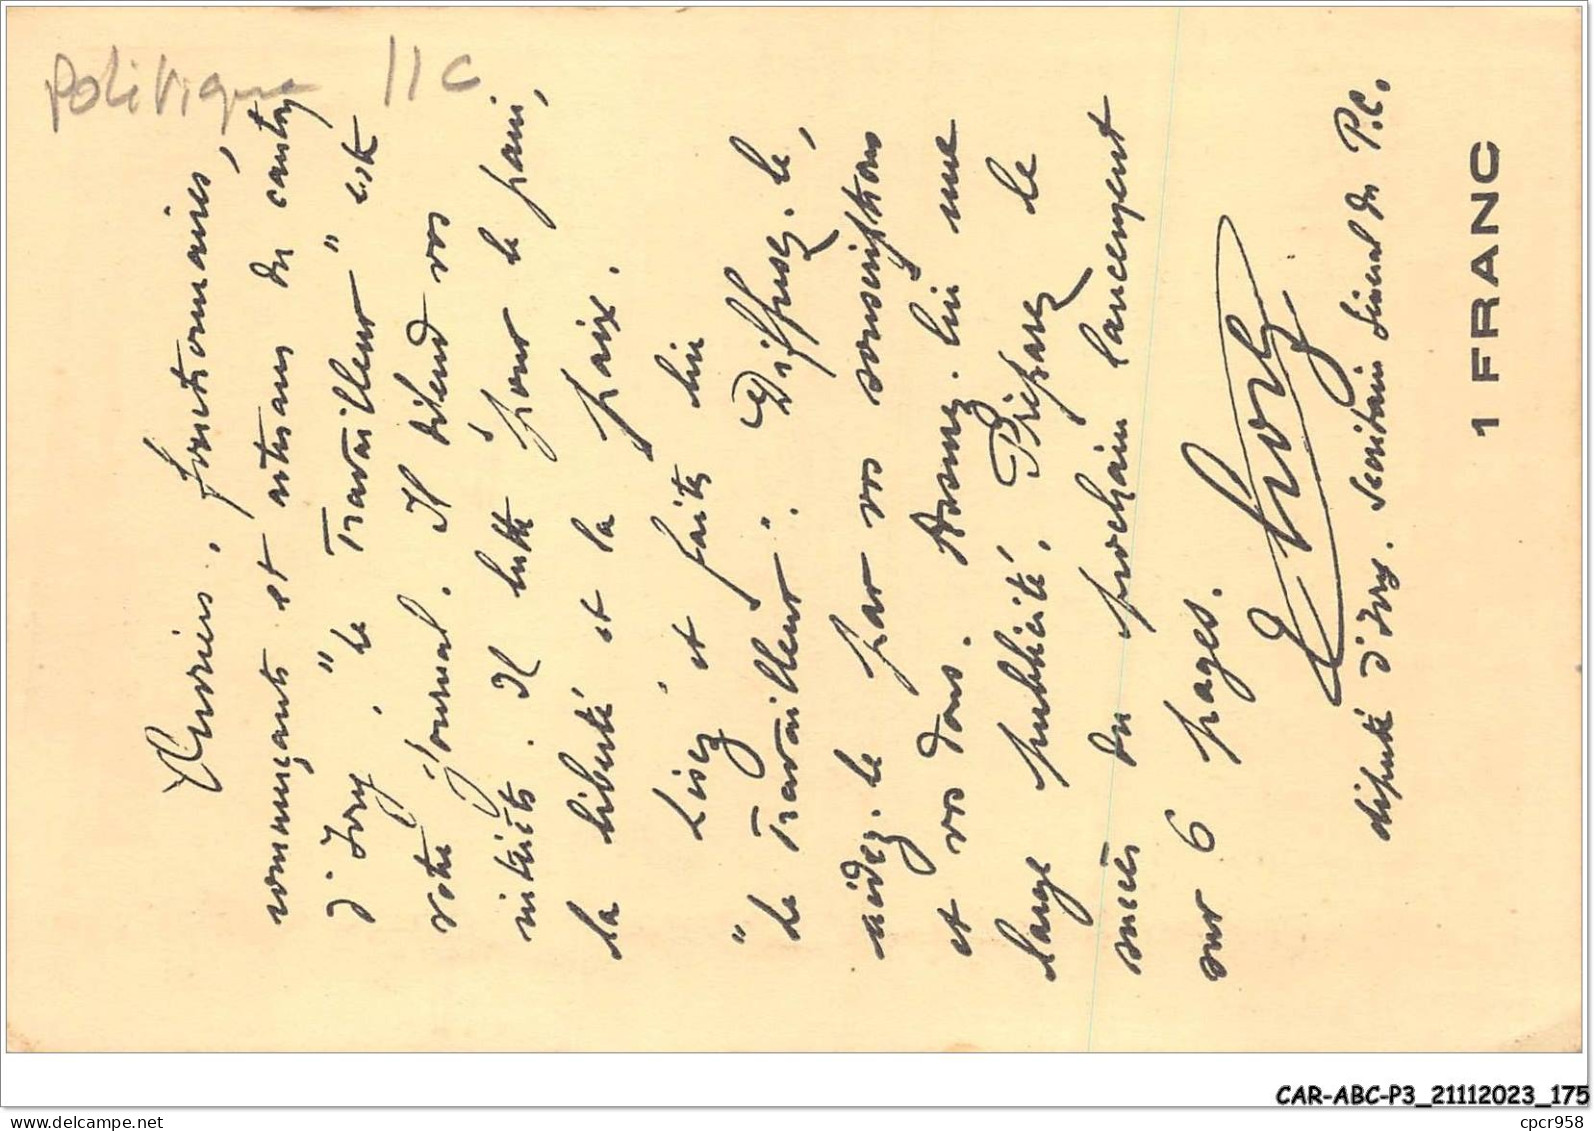 Politique 11 C
Ouvriers, fonctionnaires,
commerçants et artisans du canton
d'Ivry, "Le Travailleur" est
votre journal. Il défend vos
intérêts. Il lutte pour le pain,
la liberté et la paix.
Lisez et faites lire
"Le Travailleur". Diffusez-le,
aidez-le par vos souscriptions
et vos dons. Donnez-lui une
large publicité. Préparez le
succès du prochain lancement
sur 6 pages.
Thorez
député d'Ivry. Secrétaire Général du P.C.
1 FRANC
CAR-ABC-P3_21112023_175
www.delcampe.net
cpcr958